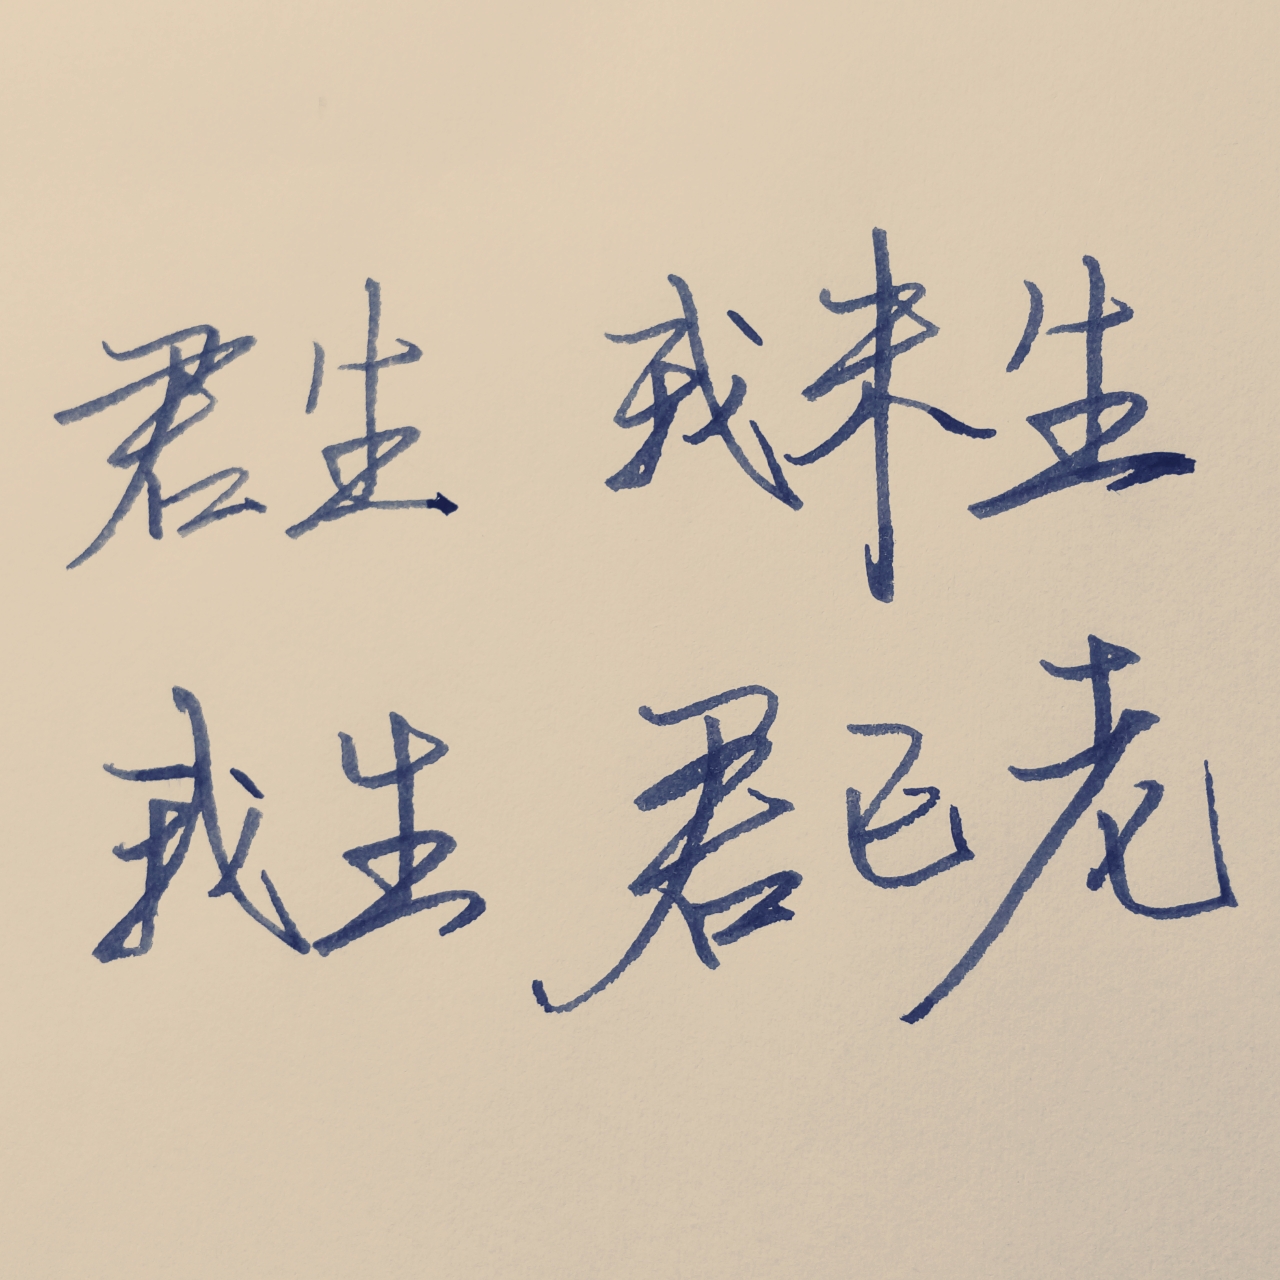 君生 我未生
我生 君已老